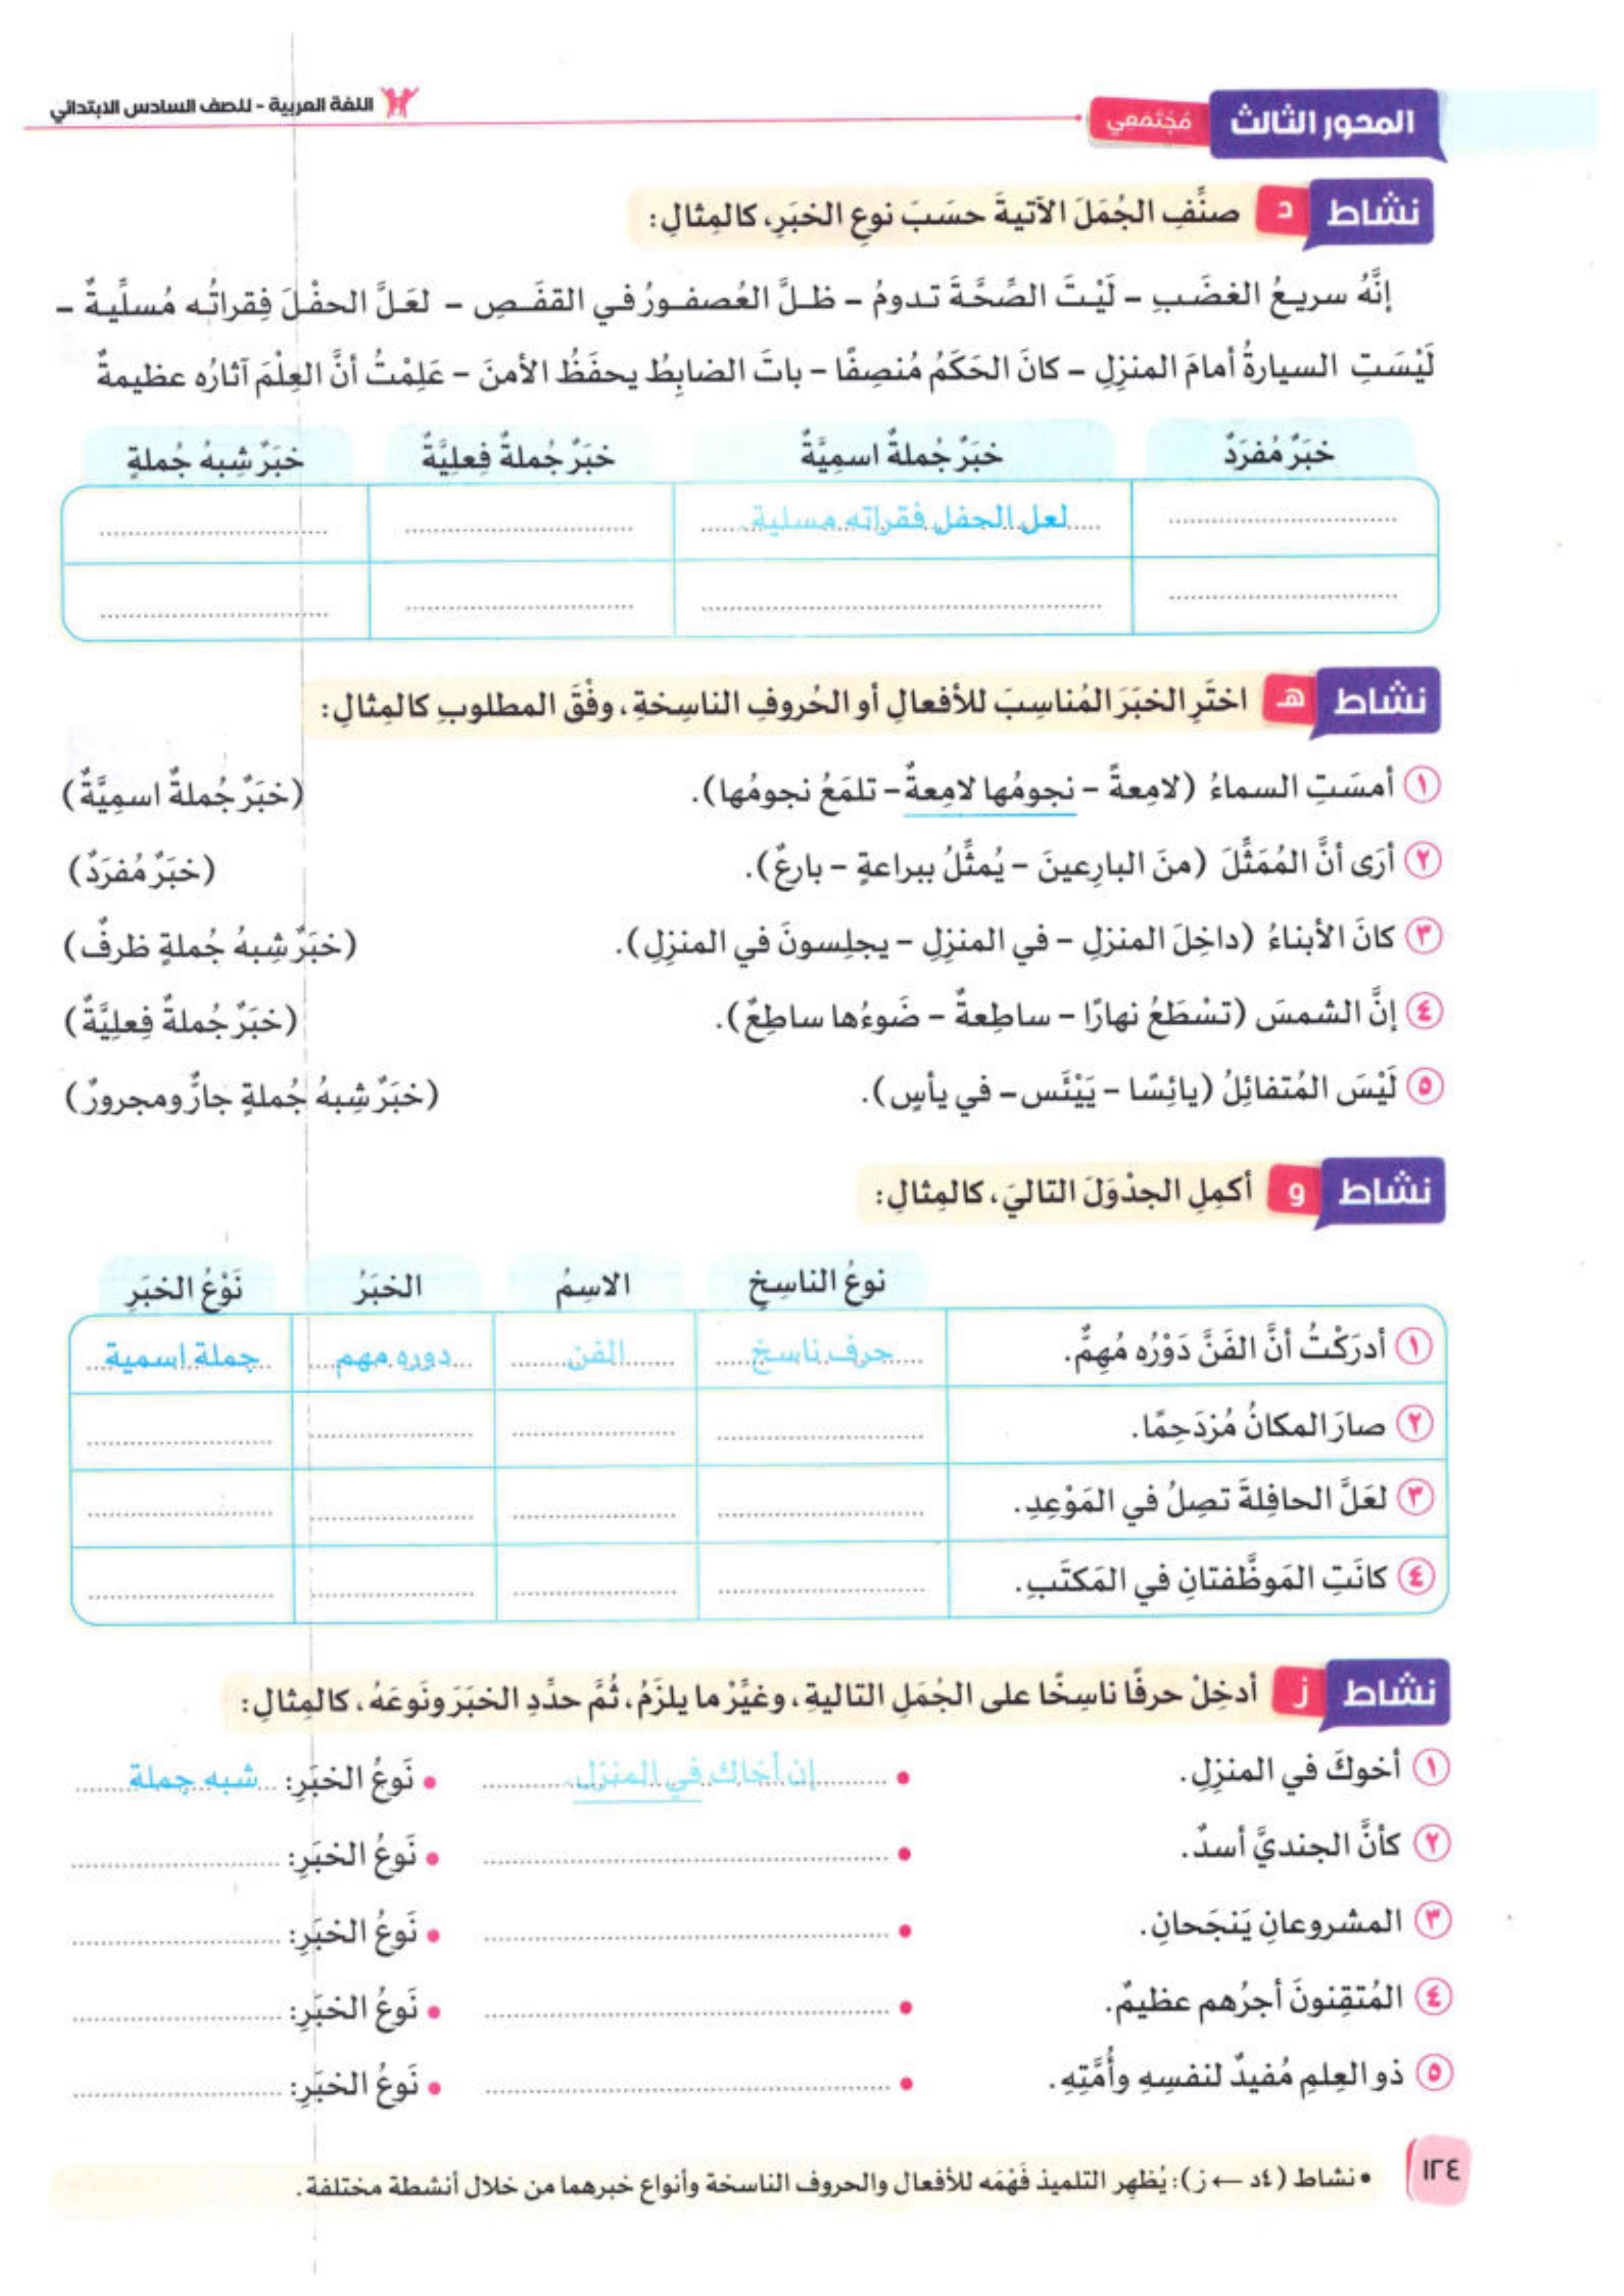 المحور الثالث مُجْتَمَعِي
اللغة العربية - للصف السادس الابتدائي
نشاط د صنِّفِ الجُمَلَ الآتيةَ حسَبَ نوعِ الخبَرِ، كالمِثالِ:
إنَّهُ سريعُ الغضَبِ - لَيْتَ الصِّحَّةَ تدومُ - ظلَّ العُصفورُ في القفَصِ - لعَلَّ الحفْلَ فِقراتُه مُسلِّيةٌ -
لَيْسَتِ السيارةُ أمامَ المنزِلِ - كانَ الحَكَمُ مُنصِفًا - باتَ الضابِطُ يحفَظُ الأمنَ - عَلِمْتُ أنَّ العِلْمَ آثارُه عظيمةٌ
خبَرٌ مُفرَدٌ خبَرٌ جُملةٌ اسمِيَّةٌ خبَرٌ جُملةٌ فِعلِيَّةٌ خبَرٌ شِبهُ جُملةٍ
لعل الحفل فقراته مسلية.
نشاط هـ اختَرِ الخبَرَ المُناسِبَ للأفعالِ أو الحُروفِ الناسِخةِ، وفْقَ المطلوبِ كالمِثالِ:
١ أمسَتِ السماءُ (لامِعةً - نجومُها لامِعةٌ - تلمَعُ نجومُها). (خبَرٌ جُملةٌ اسمِيَّةٌ)
٢ أرَى أنَّ المُمَثِّلَ (منَ البارِعينَ - يُمثِّلُ ببراعةٍ - بارعٌ). (خبَرٌ مُفرَدٌ)
٣ كانَ الأبناءُ (داخِلَ المنزلِ - في المنزِلِ - يجلِسونَ في المنزِلِ). (خبَرٌ شِبهُ جُملةٍ ظرفٌ)
٤ إنَّ الشمسَ (تسْطَعُ نهارًا - ساطِعةٌ - ضَوءُها ساطِعٌ). (خبَرٌ جُملةٌ فِعلِيَّةٌ)
٥ لَيْسَ المُتفائِلُ (يائِسًا - يَيْئَس - في يأسٍ). (خبَرٌ شِبهُ جُملةٍ جارٌّ ومجرورٌ)
نشاط و أكمِلِ الجدْوَلَ التاليَ، كالمِثالِ:
نوعُ الناسِخِ الاسِمُ الخبَرُ نَوْعُ الخبَرِ
١ أدرَكْتُ أنَّ الفَنَّ دَوْرُه مُهِمٌّ. حرف ناسخ الفن دوره مهم جملة اسمية
٢ صارَ المكانُ مُزدَحِمًا.
٣ لعَلَّ الحافِلةَ تصِلُ في المَوْعِدِ.
٤ كانَتِ المَوظَّفتانِ في المَكتَبِ.
نشاط ز أدخِلْ حرفًا ناسِخًا على الجُمَلِ التاليةِ، وغيِّرْ ما يلزَمُ، ثُمَّ حدِّدِ الخبَرَ ونَوعَهُ، كالمِثالِ:
١ أخوكَ في المنزِلِ. • إن أخاك في المنزل. • نَوعُ الخبَرِ: شبه جملة
٢ كأنَّ الجنديَّ أسدٌ. • • نَوعُ الخبَرِ:
٣ المشروعانِ يَنجَحانِ. • • نَوعُ الخبَرِ:
٤ المُتقِنونَ أجرُهم عظيمٌ. • • نَوعُ الخبَرِ:
٥ ذو العِلمِ مُفيدٌ لنفسِهِ وأُمَّتِهِ. • • نَوعُ الخبَرِ:
• نشاط (٤د ← ز): يُظهِر التلميذ فَهْمَه للأفعال والحروف الناسخة وأنواع خبرهما من خلال أنشطة مختلفة.
١٢٤